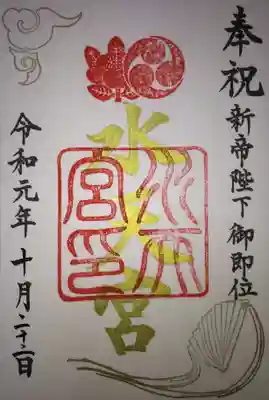 奉祝
新帝陛下御即位
水天宮
水天宮印
令和元年 十月二十二日